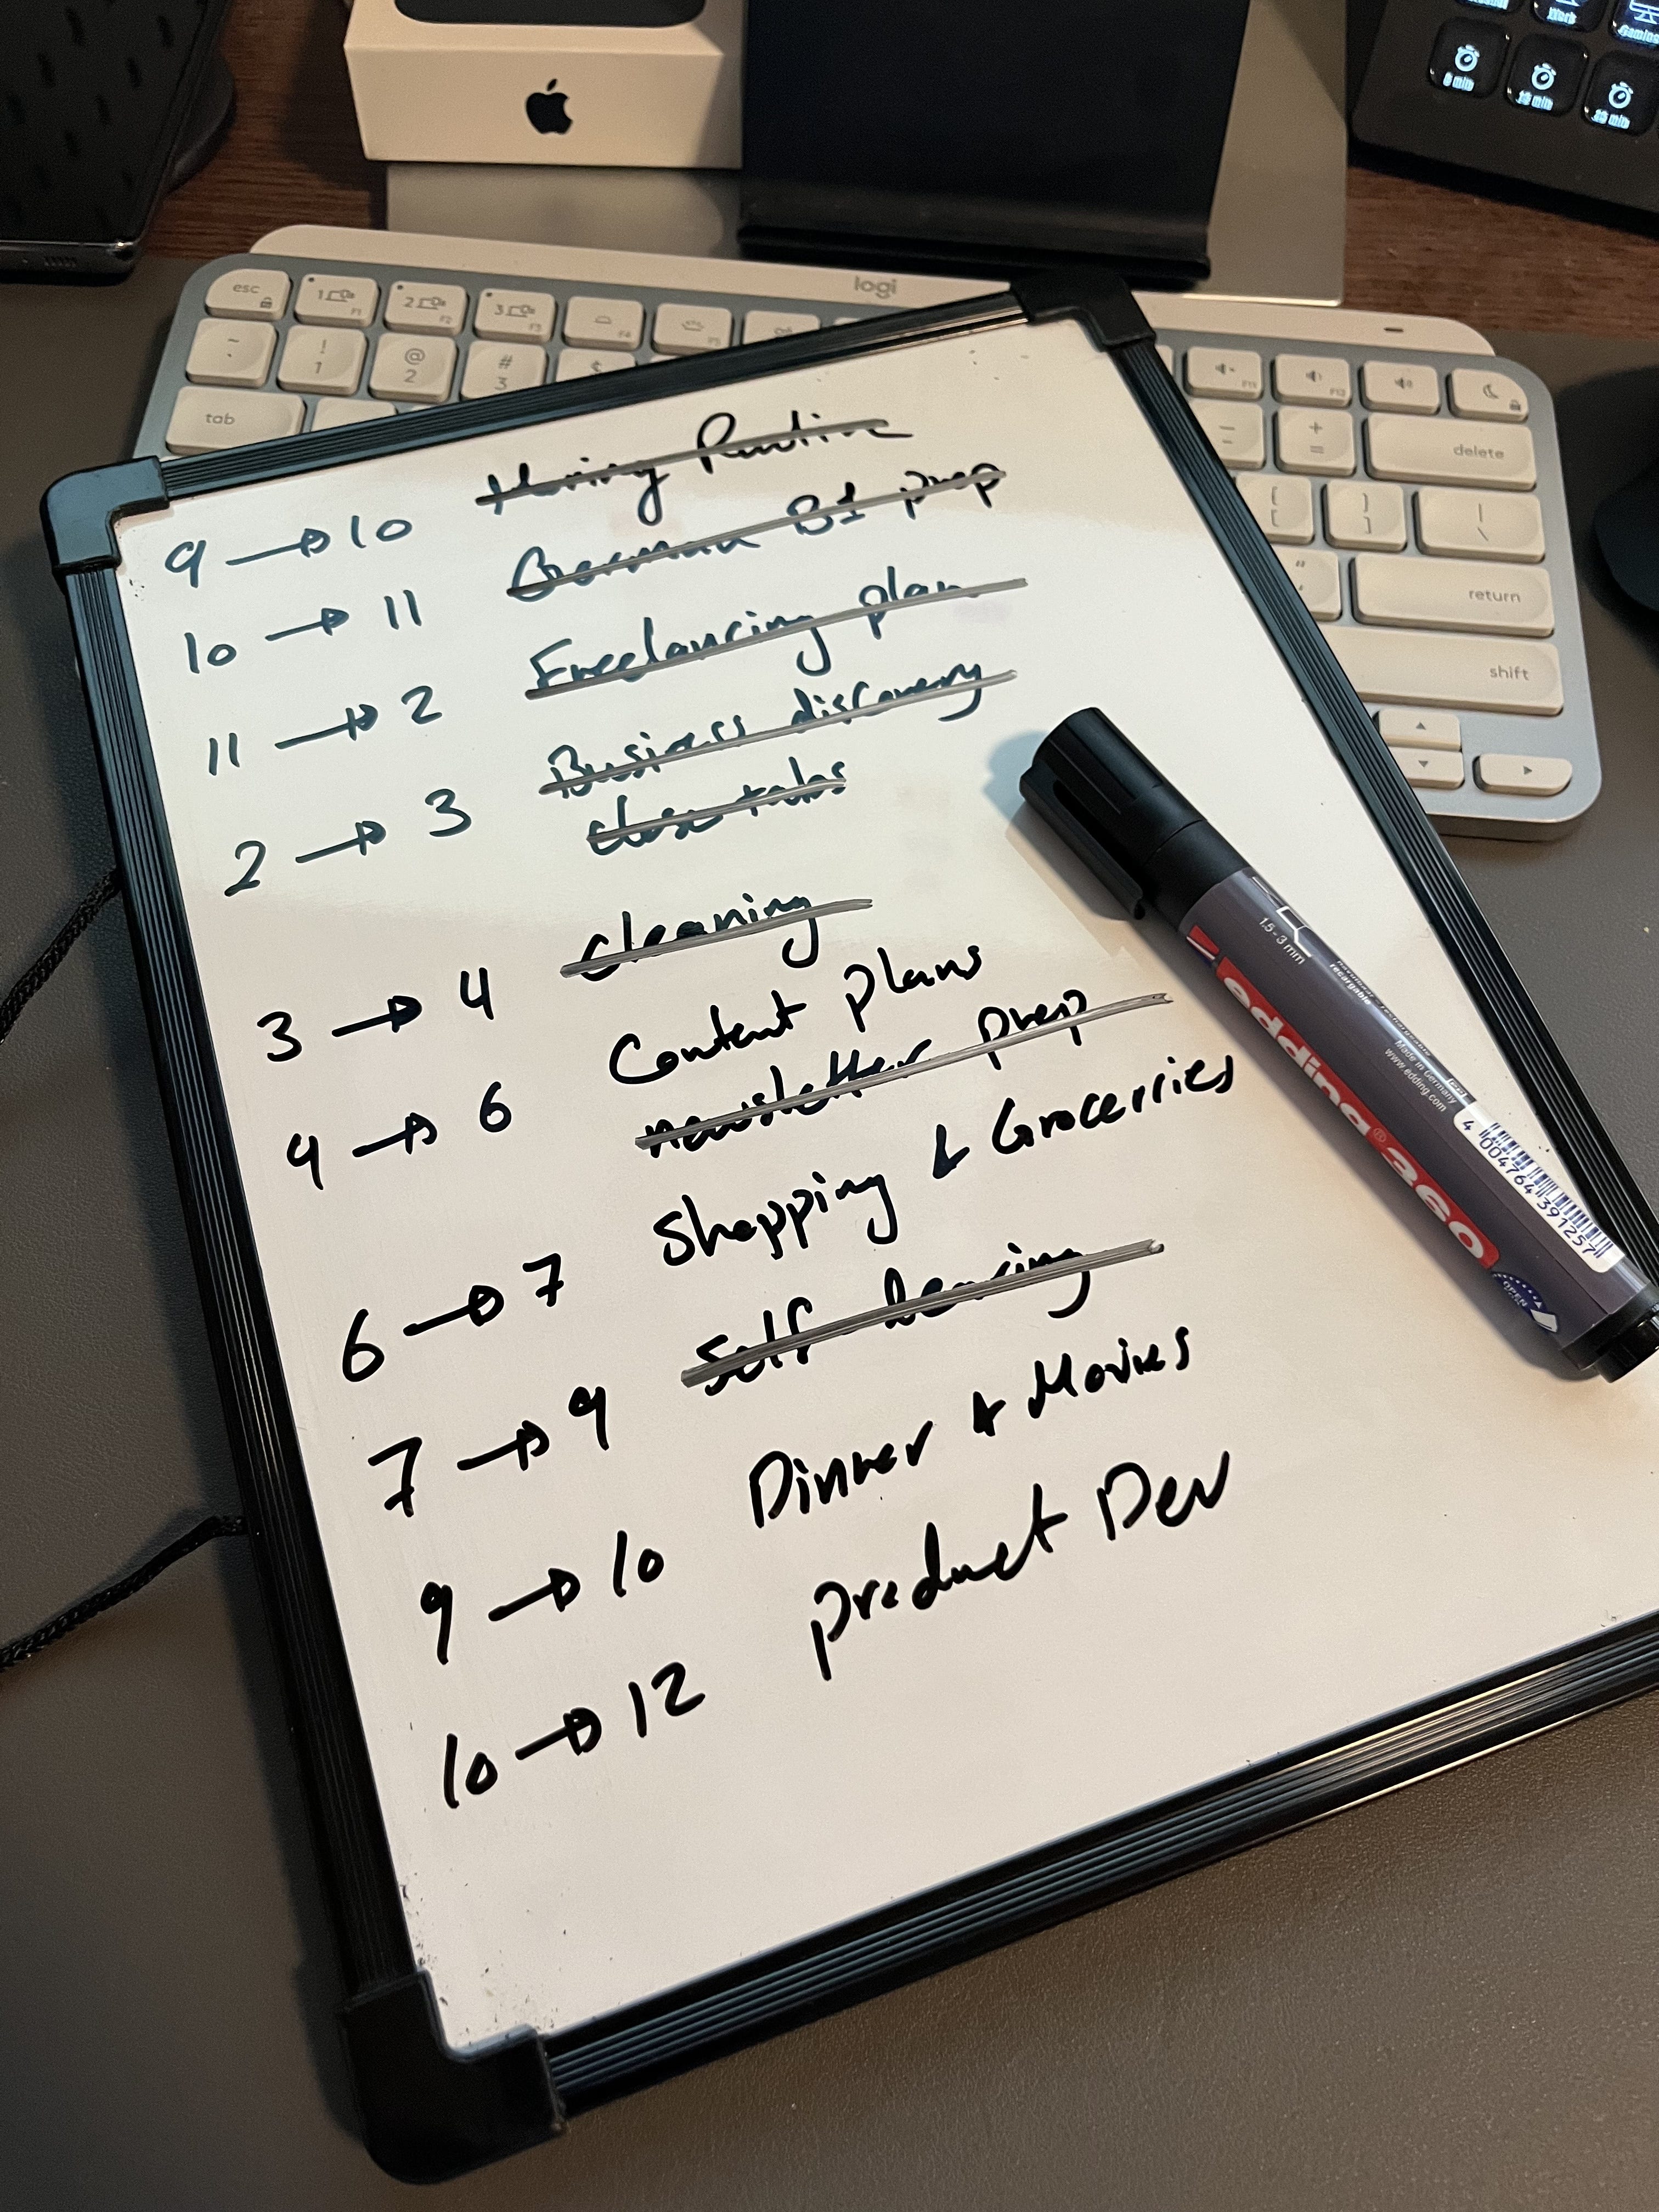 Work
Gaming
5 min
esc
1 F1
2 F2
3 F3
F4
F5
logi
F11
F12
~ `
! 1
@ 2
# 3
$
+ =
delete
tab
{ [
} ]
| \
return
shift
Moring Routine
9 → 10 German B1 prep
10 → 11 Freelancing plan
11 → 2 Business discovery
2 → 3 close tabs
cleaning
3 → 4 Content plans
4 → 6 newsletter prep
Shopping & Groceries
6 → 7 Self learning
7 → 9 Dinner & Movies
9 → 10 product Dev
10 → 12
1.5 - 3 mm
recargable
Made in Germany
www.edding.com
edding® 360
4 004764 391257
OPEN